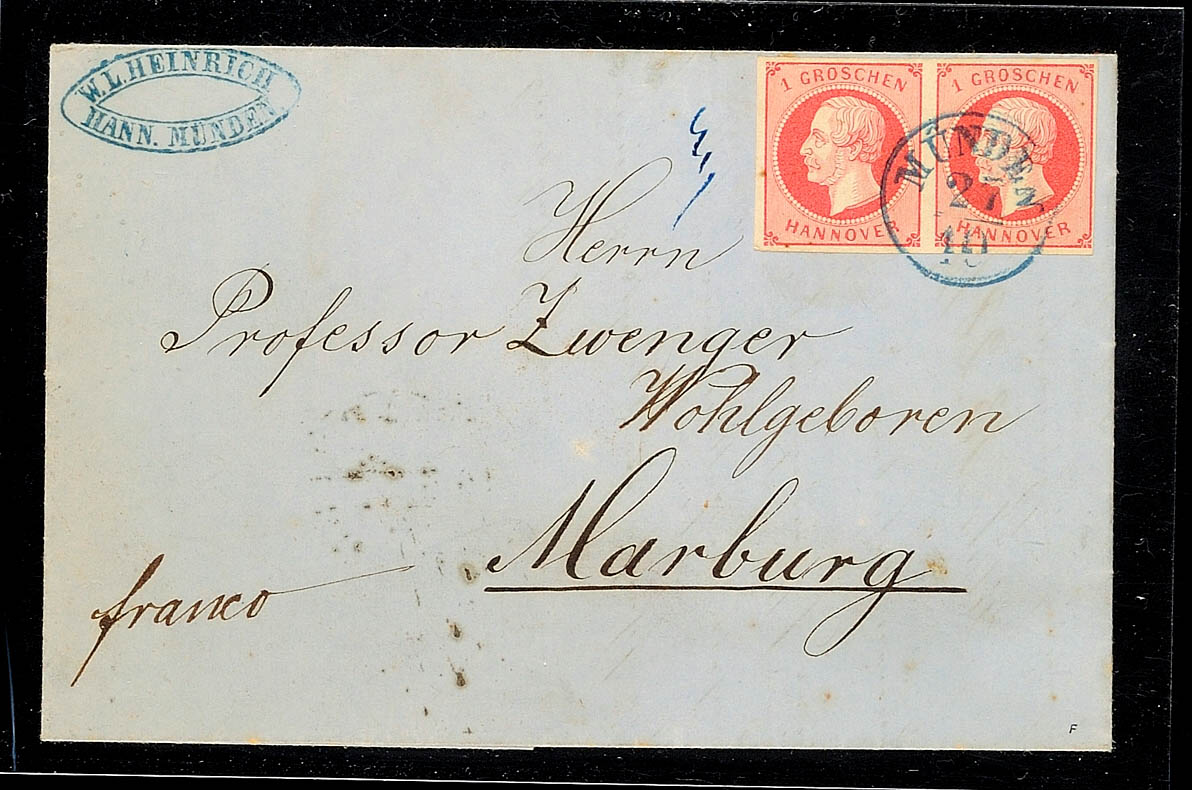 W. L. HEINRICH
HANN. MÜNDEN.
1 GROSCHEN
HANNOVER
1 GROSCHEN
HANNOVER
MÜNDEN
27
10
Herrn
Professor Zwenger
Wohlgeboren
Marburg
franco
F